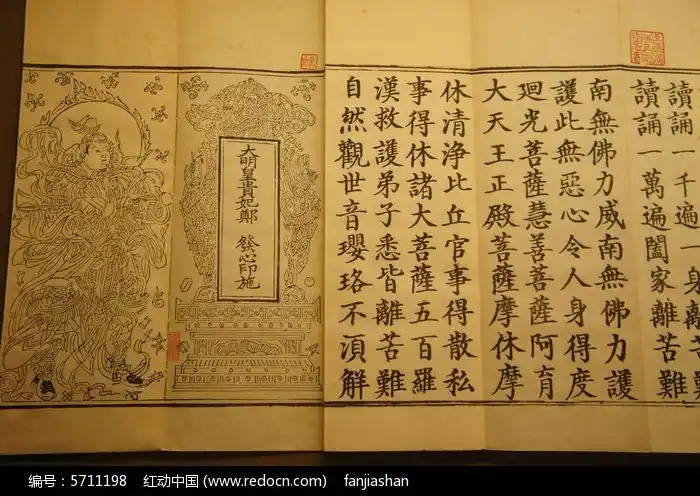 讀誦一千遍一身離苦難
讀誦一萬遍闔家離苦難
南無佛力威南無佛力護
護此無惡心令人身得度
廻光菩薩慧善菩薩阿育
大天王正殿菩薩摩休摩
休清淨比丘官事得散私
事得休諸大菩薩五百羅
漢救護弟子悉皆離苦難
自然觀世音瓔珞不湏解
大明皇貴妃鄭 發心印施
编号：5711198 红动中国 (www.redocn.com) fanjiashan